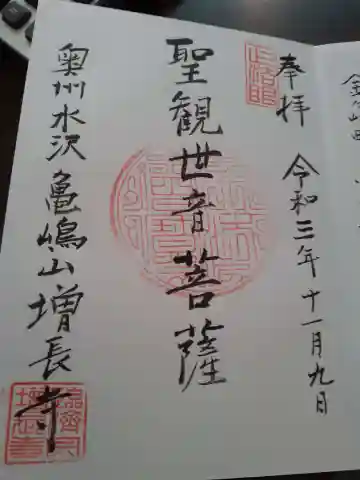 奉拝 令和三年十一月九日
聖観世音菩薩
奥州水沢亀嶋山増長寺